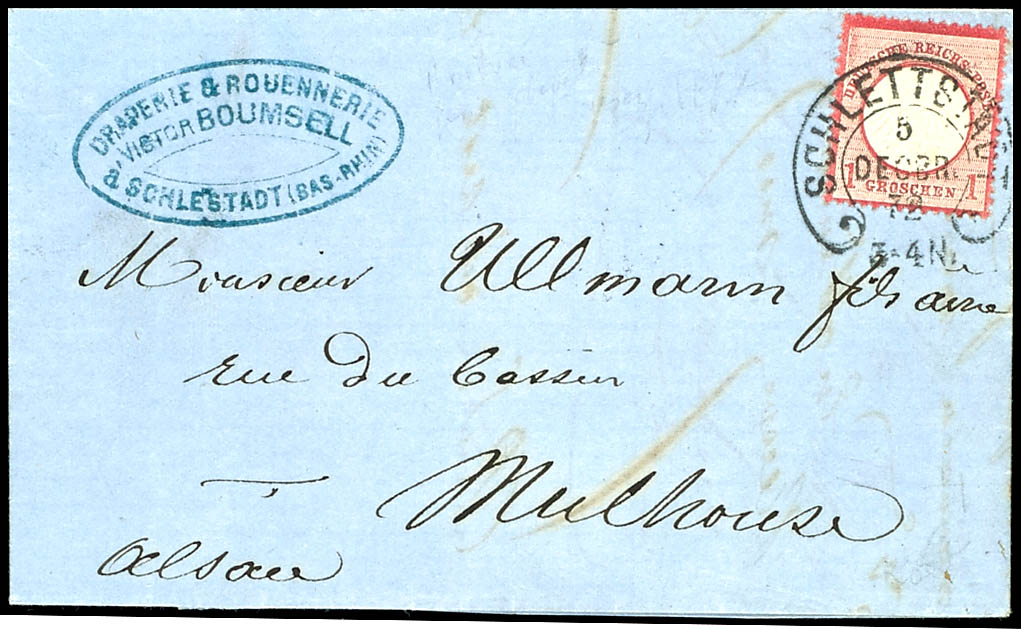 DRAPERIE & ROUENNERIE
VICTOR BOUMSELL
à SCHLESTADT (BAS-RHIN)
DEUTSCHE REICHS-POST
1 GROSCHEN 1
SCHLETTSTADT
5
DECBR.
72
3-4N.
Monsieur Ullmann fils aine
rue du Bassin
Mulhouse
Alsace